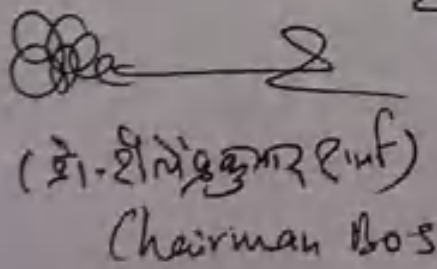 (डॉ. शैलेंद्रकुमार शर्मा)
Chairman BOS